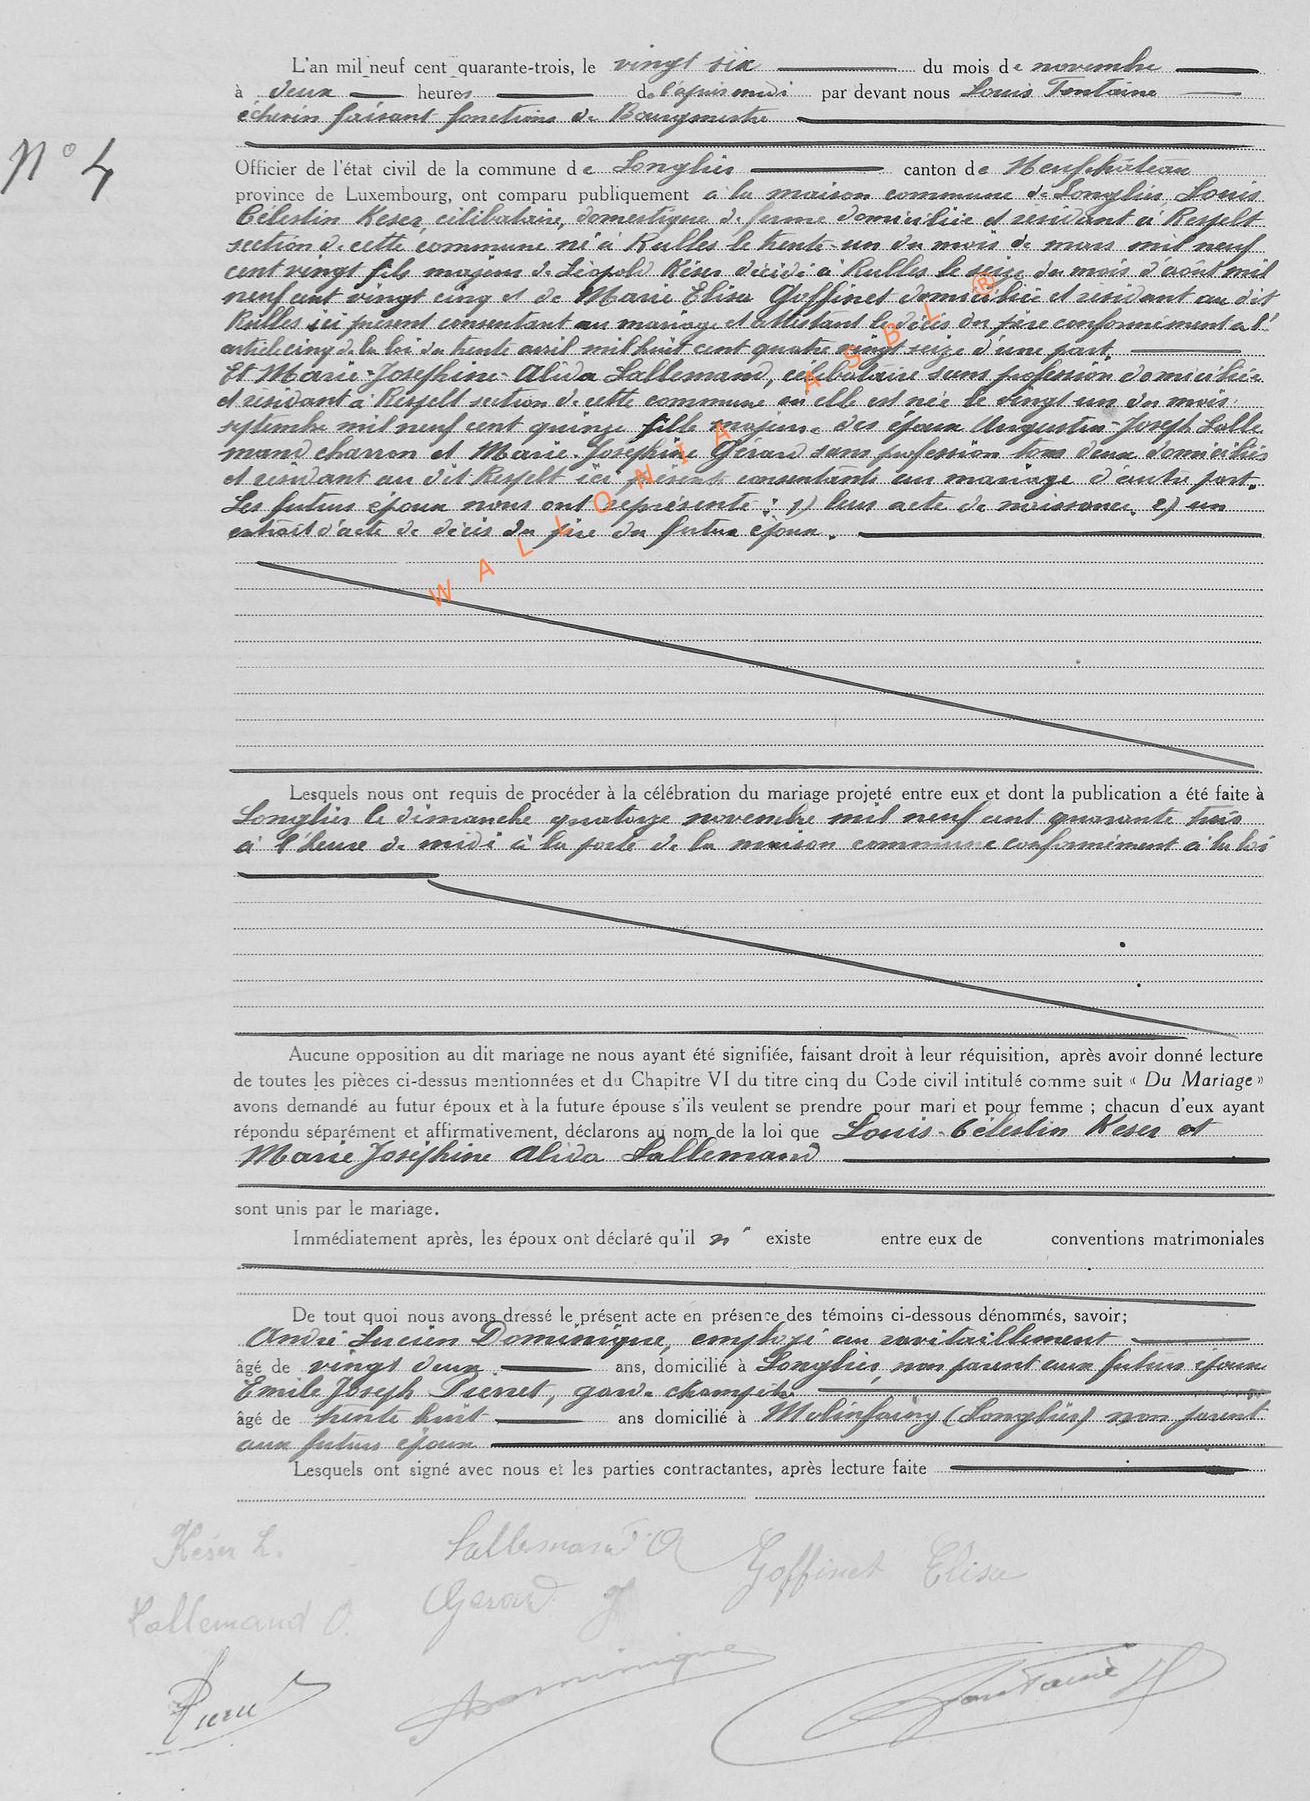 L'an mil neuf cent quarante-trois, le vingt six du mois de novembre
à deux heures de l'après midi par devant nous Louis Fontaine
échevin faisant fonctions de Bourgmestre
N° 4
Officier de l'état civil de la commune de Longlier canton de Neufchâteau
province de Luxembourg, ont comparu publiquement à la maison commune de Longlier, Louis
Célestin Keser, célibataire, domestique de ferme domicilié et résidant à Respelt
section de cette commune né à Rulles le trente-un du mois de mars mil neuf
cent vingt fils majeur de Léopold Késer décédé à Rulles le seize du mois d'août mil
neuf cent vingt cinq et de Marie Elisa Goffinet domiciliée et résidant au dit
Rulles ici présent consentant au mariage et attestant le décès du père conformément à l'
article cinq de la loi du trente avril mil huit cent quatre vingt seize d'une part.
Et Marie-Josephine-Alida Lallemand, célibataire sans profession domiciliée
et résidant à Respelt section de cette commune où elle est née le vingt un du mois
septembre mil neuf cent quinze fille majeure des époux Augustin-Joseph Lalle
mand charron et Marie-Joséphine Gérard sans profession tous deux domiciliés
et résidant au dit Respelt ici présents consentants au mariage d'autre part.
Les futurs époux nous ont représenté : 1) leurs acte de naissance. 2) un
extrait d'acte de décès du père du futur époux.
WALLONIA ASBL ®
Lesquels nous ont requis de procéder à la célébration du mariage projeté entre eux et dont la publication a été faite à
Longlier le dimanche quatorze novembre mil neuf cent quarante trois
à l'heure de midi à la porte de la maison commune conformément à la loi
Aucune opposition au dit mariage ne nous ayant été signifiée, faisant droit à leur réquisition, après avoir donné lecture
de toutes les pièces ci-dessus mentionnées et du Chapitre VI du titre cinq du Code civil intitulé comme suit « Du Mariage »
avons demandé au futur époux et à la future épouse s'ils veulent se prendre pour mari et pour femme ; chacun d'eux ayant
répondu séparément et affirmativement, déclarons au nom de la loi que Louis-Célestin Keser et
Marie Joséphine Alida Lallemand
sont unis par le mariage.
Immédiatement après, les époux ont déclaré qu'il n' existe entre eux de conventions matrimoniales
De tout quoi nous avons dressé le présent acte en présence des témoins ci-dessous dénommés, savoir;
André Lucien Dominique, employé au ravitaillement
âgé de vingt deux ans, domicilié à Longlier, non parent aux futurs époux
Emile Joseph Pierret, garde champêtre
âgé de trente huit ans domicilié à Molinfaing (Longlier) non parent
aux futurs époux
Lesquels ont signé avec nous et les parties contractantes, après lecture faite
Késer L. Lallemand A Goffinet Elisa
Lallemand Gerard J
Pierret Dominique Fontaine